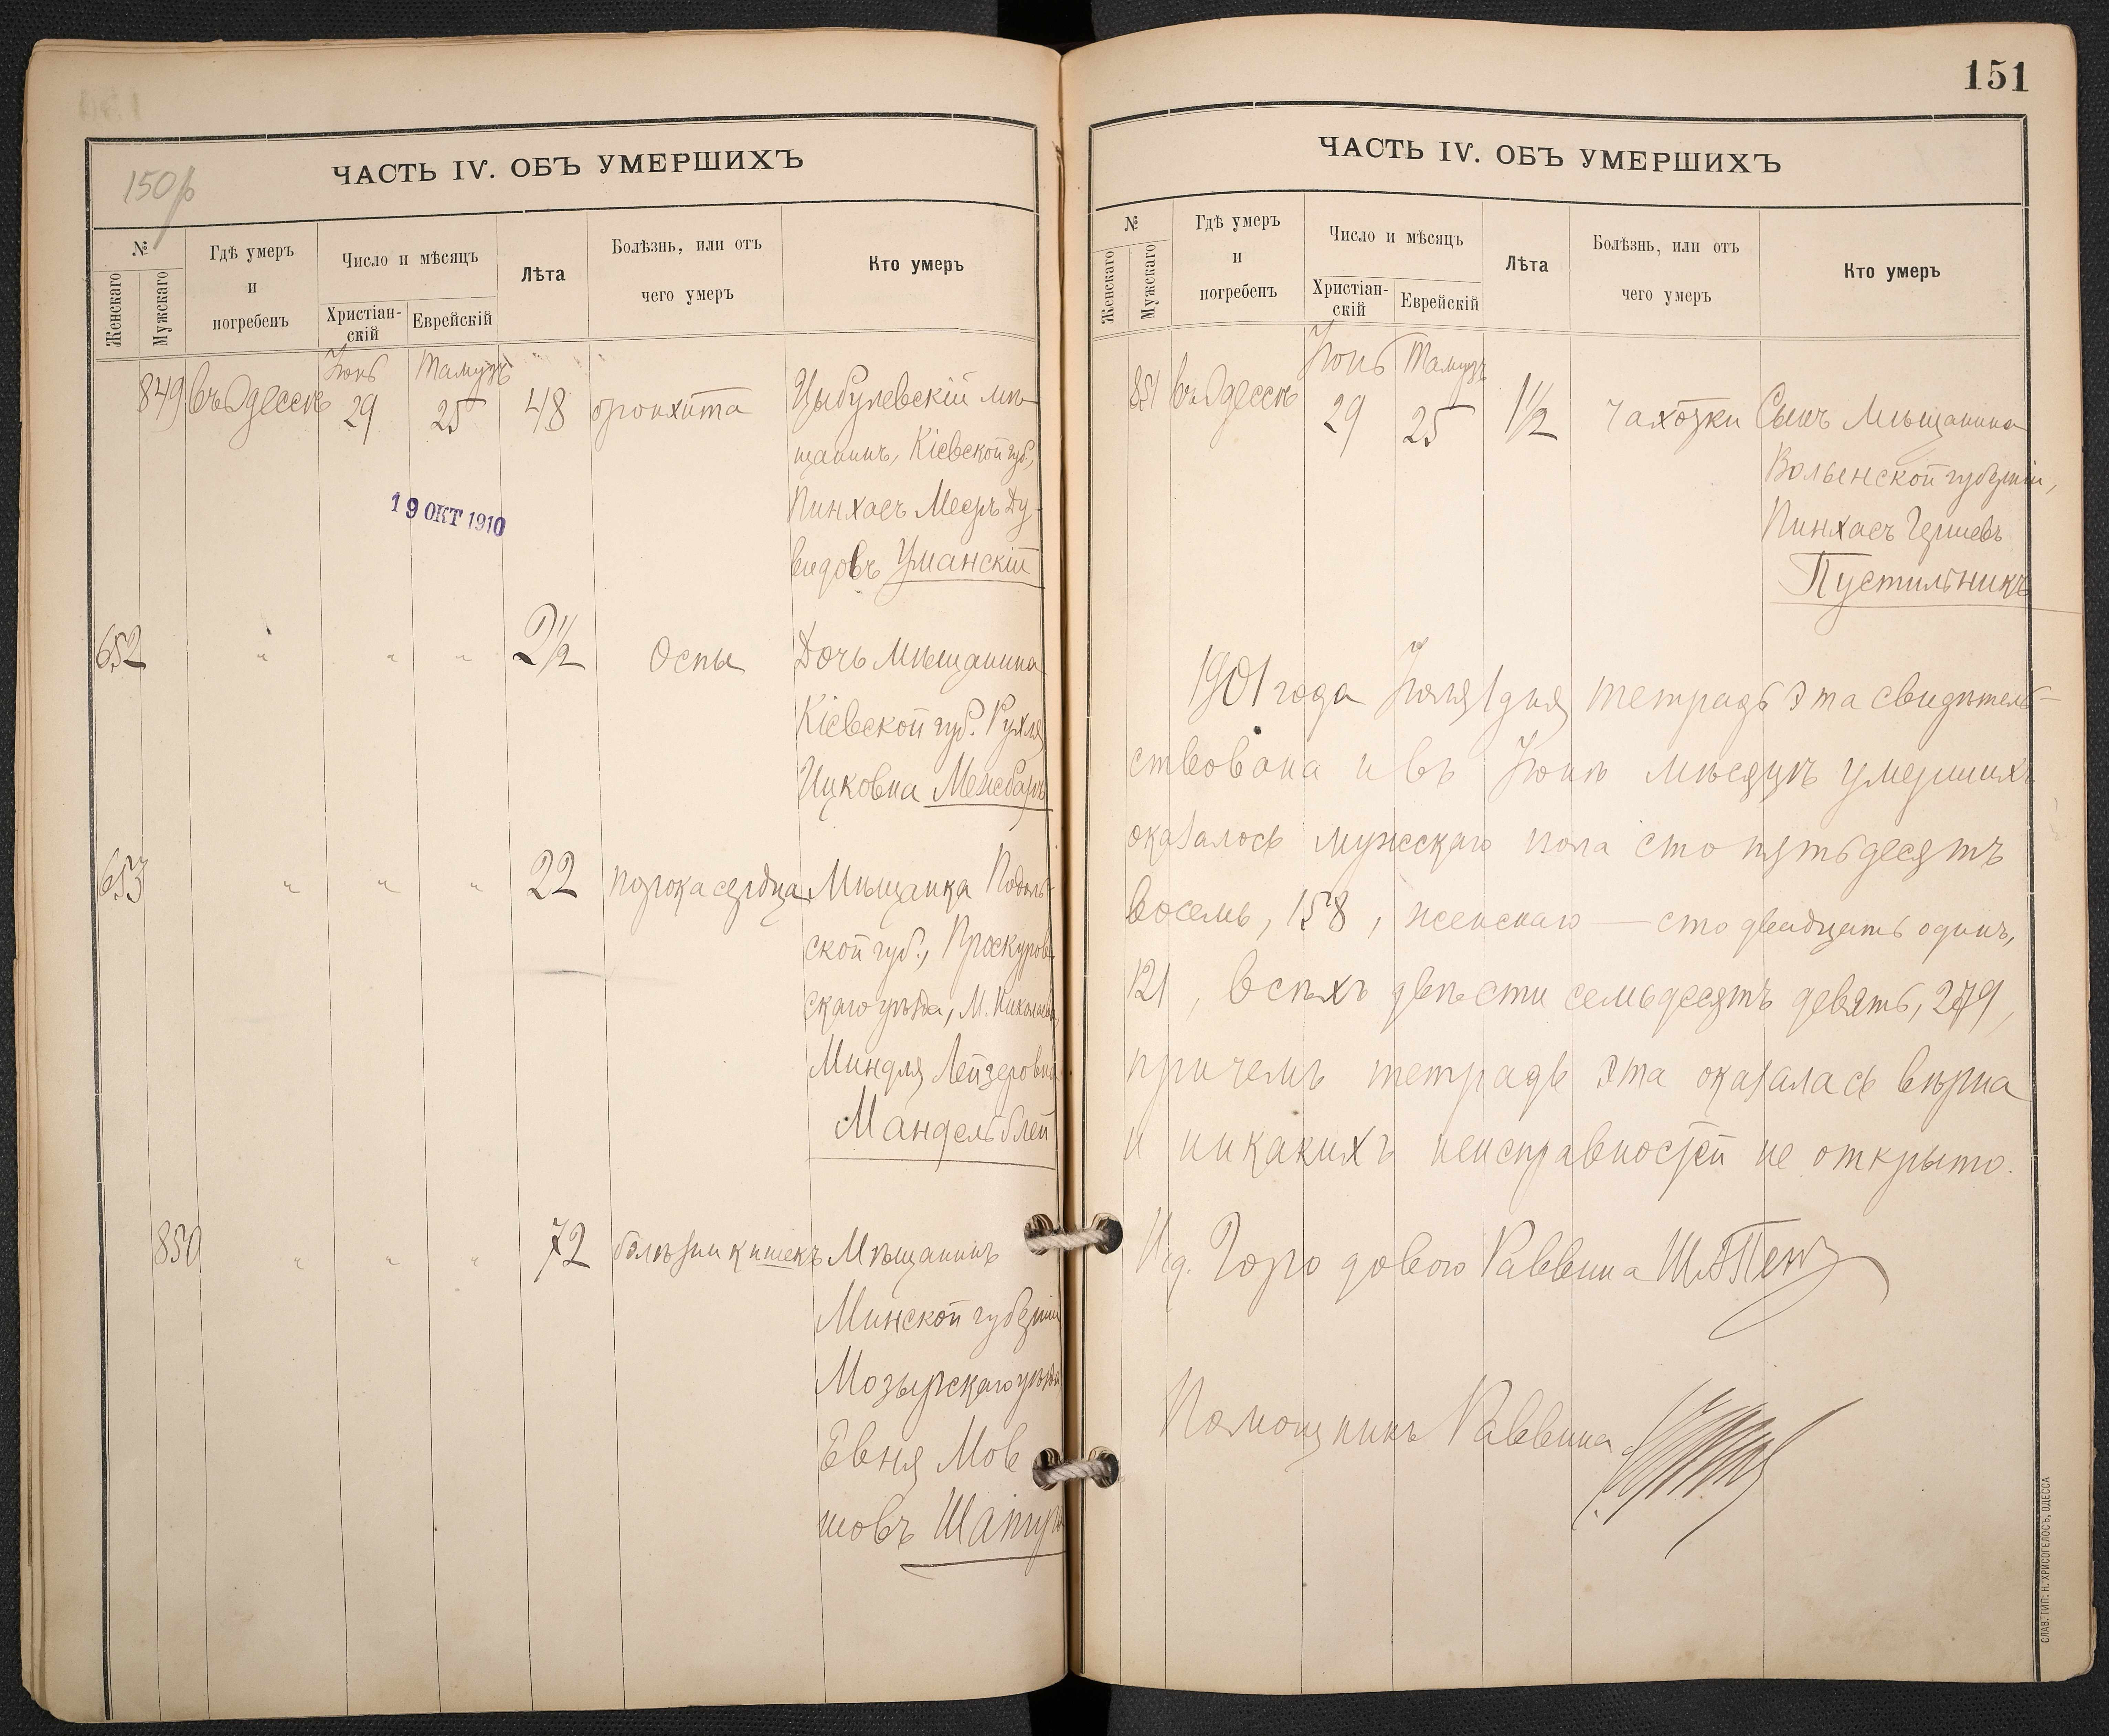 151
150
ЧАСТЬ IV. ОБЪ УМЕРШИХЪ
№
Женскаго
Мужскаго
Гдѣ умеръ
и
погребенъ
Число и мѣсяцъ
Христіан-
скій
Еврейскій
Лѣта
Болѣзнь, или отъ
чего умеръ
Кто умеръ
849 въ Одессѣ Іюнь 29 Тамузъ 25 48 бронхита Цыбулевскій мѣ-
щанинъ, Кіевской губ.,
Пинхасъ Мееръ Ду-
видовъ Уманскій
19 ОКТ 1910
652 " " " 2½ Оспы Дочь Мѣщанина
Кіевской губ. Рухля
Ицковна Межбаръ
653 " " " 22 порока сердца Мѣщанка Подоль-
ской губ., Проскуров-
скаго уѣзда, М. Николаева,
Миндля Лейзеровна
Мандельблей
850 " " " 72 болѣзни кишекъ Мѣщанинъ
Минской губерніи
Мозырскаго уѣзда
Евня Мов
шовъ Шапиро
ЧАСТЬ IV. ОБЪ УМЕРШИХЪ
№
Женскаго
Мужскаго
Гдѣ умеръ
и
погребенъ
Число и мѣсяцъ
Христіан-
скій
Еврейскій
Лѣта
Болѣзнь, или отъ
чего умеръ
Кто умеръ
851 въ Одессѣ Іюнь 29 Тамузъ 25 1½ Чахотки Сынъ Мѣщанина
Волынской губерніи,
Пинхасъ Гершевъ
Пустильникъ
1901 года Іюля 1 дня тетрадь эта свидѣтель-
ствована и въ Іюнѣ мѣсяцѣ умершихъ
оказалось мужскаго пола сто пятьдесятъ
восемь, 158, женскаго — сто двадцать одинъ,
121, всѣхъ двѣсти семьдесятъ девять, 279,
причемъ тетрадь эта оказалась вѣрна
и никакихъ неисправностей не открыто.
И.д. Городового Раввина
Помощникъ Раввина
СЛАВ. ТИП. Н. ХРИСОГЕЛОСЪ, ОДЕССА